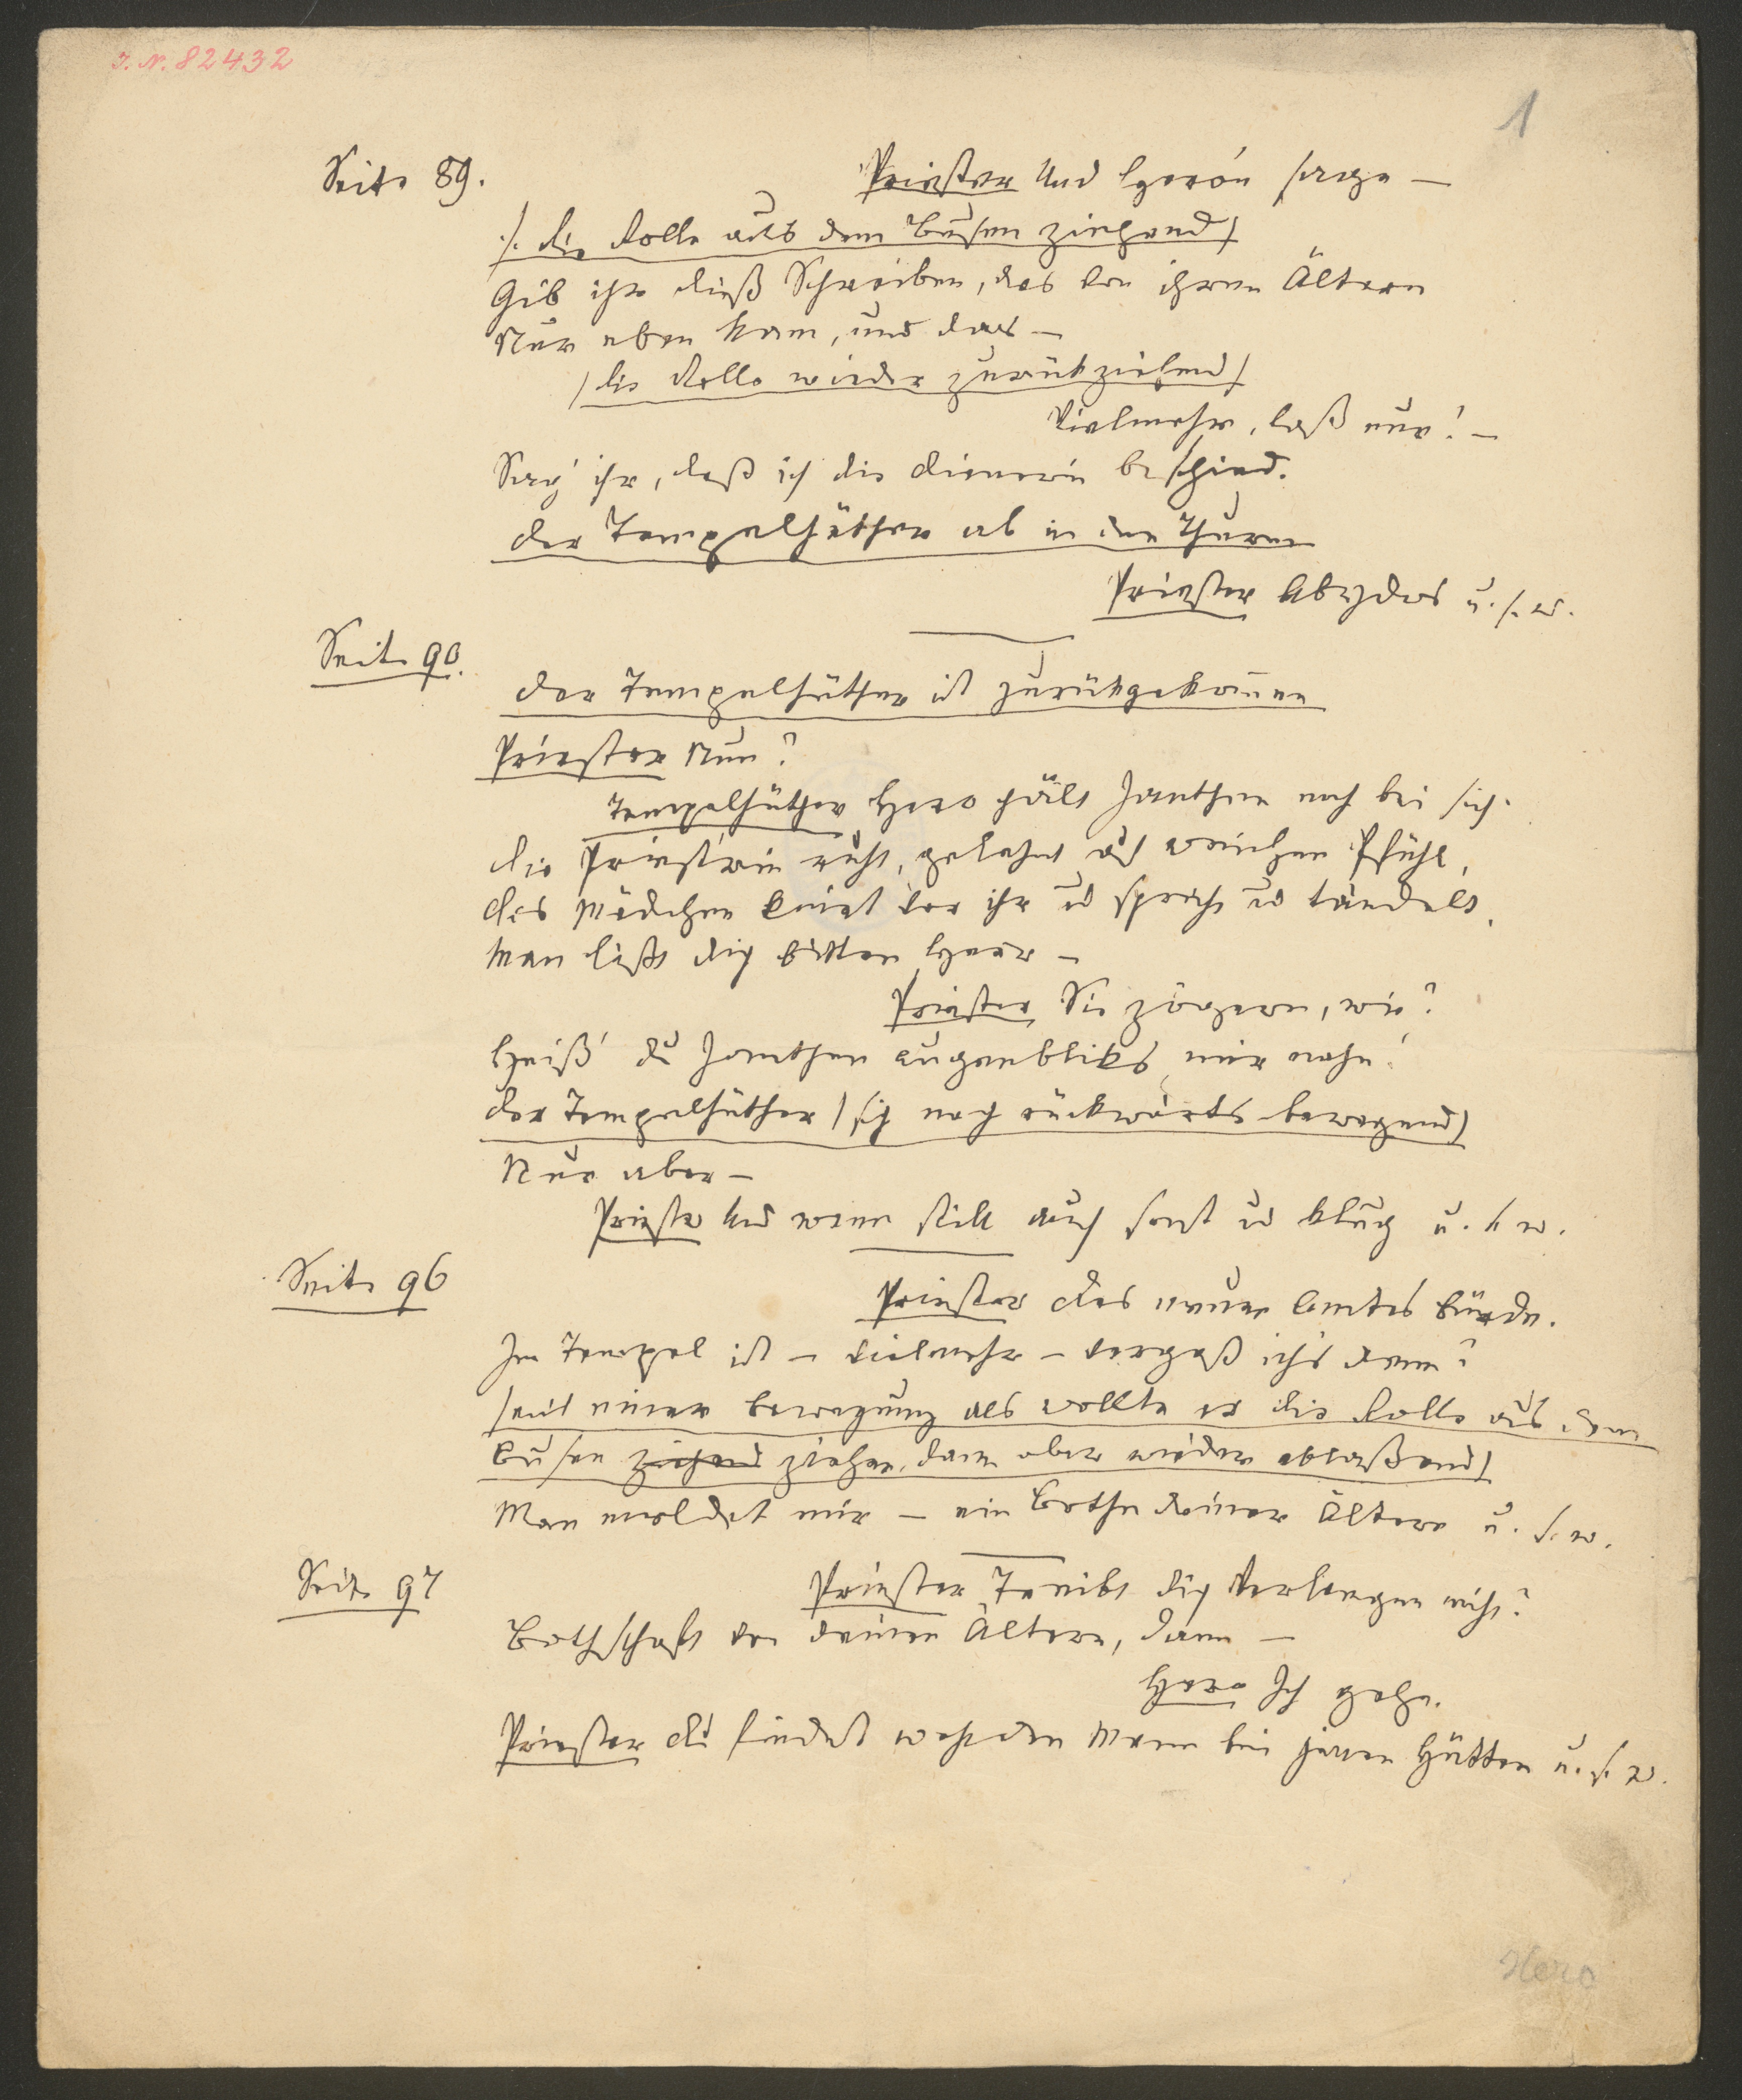 J. N. 82432
1
Seite 89.
Priester Und Heron sage —
/: die Rolle aus dem Busen ziehend/
Gib ihr dieß Schreiben, das von ihren Ältern
Nur eben kam, und das —
/die Rolle wieder zurückziehend/
Vielmehr, laß nur! —
Sag' ihr, daß ich die Dienerin beschied.
Der Tempelhüther ab in den Thurm
Priester Abydos u. s. w.
Seite 90.
Der Tempelhüther ist zurückgekommen
Priester Nun?
Tempelhüther Hero hält Janthen noch bei sich.
Die Priestrin ruht, gelehnt auf weichen Pfühl,
Das Mädchen kniet vor ihr und spricht und tändelt.
Man läßt dich bitten Herr —
Priester Sie zögern, wie?
Heiß' du Janthen augenbliks mir nahn!
Der Tempelhüther /sich nach rückwärts bewegend/
Nur aber —
Priester Und wenn still auch sonst und klug u. s. w.
Seite 96
Priester Des neuen Amtes Bürde.
Im Tempel ist — vielmehr — vergaß ichs denn?
/mit einer Bewegung als wollte er die Rolle aus dem
Busen ziehend ziehen, dann aber wieder ablaßend/
Man meldet mir — ein Bothe deiner Ältern u. s. w.
Seite 97
Priester Treibt dich Verlangen nicht?
Bothschaft von deinen Ältern, dann —
Hero Ich gehe.
Priester Du findest wohl den Mann bei jenen Hütten u. s. w.
Hero